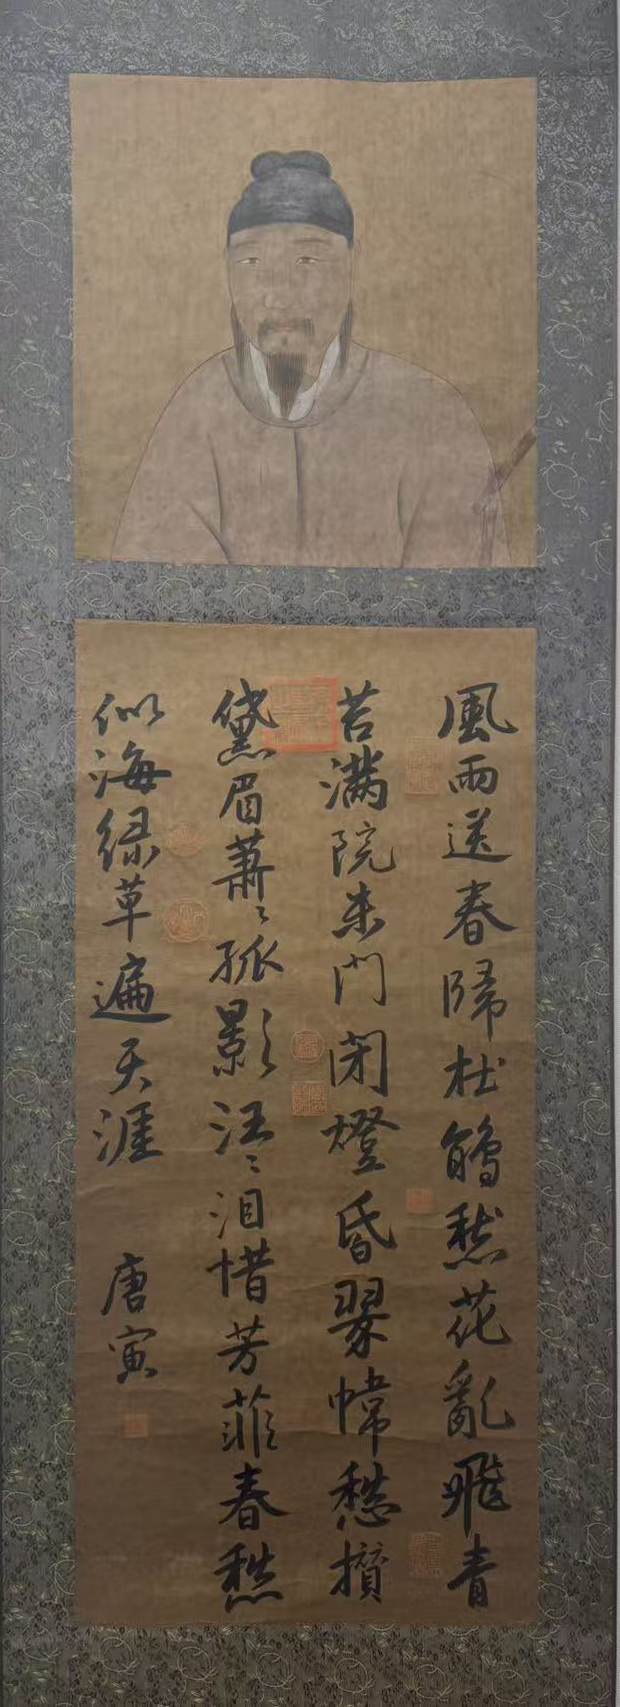 風雨送春歸杜鵑愁花亂飛青
苔滿院朱門閉燈昏翠幃愁攢
黛眉蕭〻孤影汪〻泪惜芳菲春愁
似海緑草遍天涯
唐寅